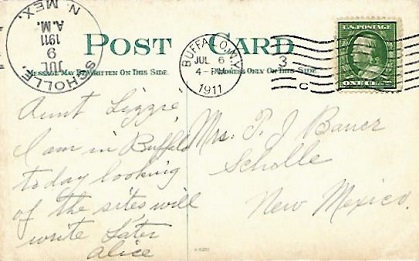 SCHOLLE,
JUL
9
A.M.
1911
N. MEX.
POST CARD
BUFFALO, N.Y.
JUL 6
4-PM
1911
3
C
MESSAGE MAY BE WRITTEN ON THIS SIDE
ONLY ON THIS SIDE.
ONE CENT
Aunt Lizzie
I am in Buffalo
today looking
of the sites will
write Later
Alice
Mrs. P. J. Bauer
Scholle
New Mexico.